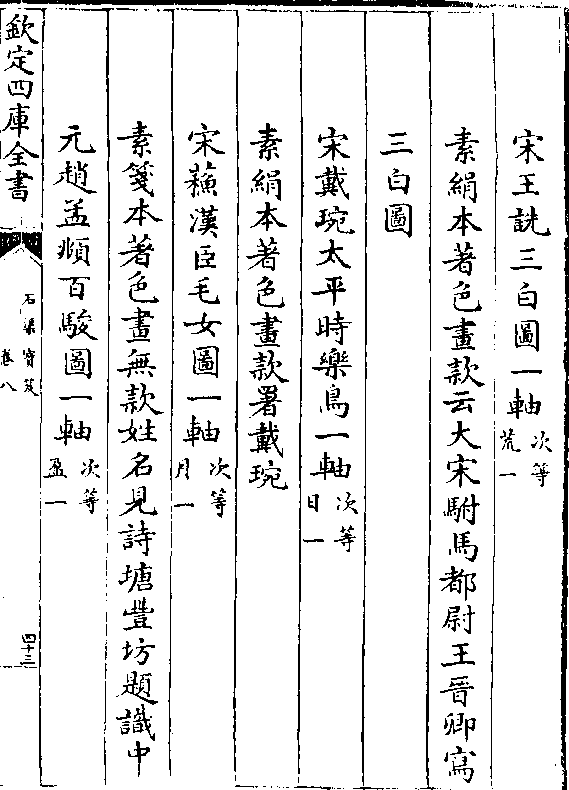 宋王詵三白圖一軸次等荒一
素絹本著色畫款云大宋駙馬都尉王晉卿寫
三白圖
宋戴琬太平時樂鳥一軸次等日一
素絹本著色畫款署戴琬
宋蘓漢臣毛女圖一軸次等月一
素箋本著色畫無款姓名見詩塘豐坊題識中
元趙孟頫百駿圖一軸次等盈一
欽定四庫全書
石渠寶笈
卷八
四十三